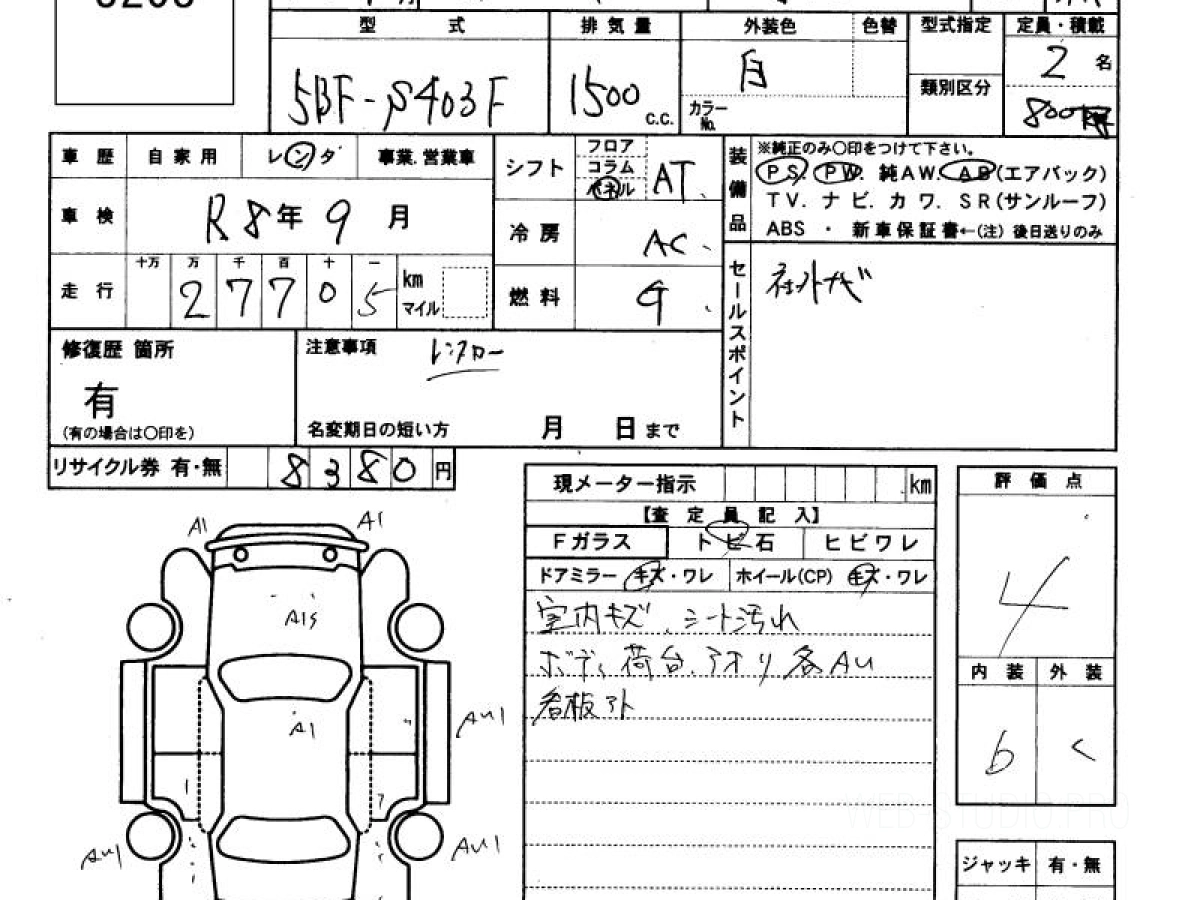 型 式 排 気 量 外装色 色替 型式指定 定員・積載
5BF-S403F 1500 C.C. 白 カラーNo. 類別区分 2 名
800
車 歴 自 家 用 レ ン タ 事業.営業車
車 検 R8年 9 月
走 行 十万 万 千 百 十 一
2 7 7 0 5 km マイル
シフト フロア コラム パネル AT
冷 房 AC
燃 料 G
装備品 ※純正のみ〇印をつけて下さい。
PS. PW. 純AW. AB(エアバック)
TV. ナ ビ. カ ワ. SR(サンルーフ)
ABS ・ 新車保証書←(注) 後日送りのみ
セールスポイント 社外ナビ
修復歴 箇所
有
(有の場合は〇印を)
注意事項 レンフロー
名変期日の短い方 月 日 まで
リサイクル券 有・無 8 3 8 0 円
現メーター指示 km
【査 定 員 記 入】
Fガラス ト ビ 石 ヒ ビ ワ レ
ドアミラー キズ・ワレ ホイール(CP) キズ・ワレ
室内キズ、シート汚れ
ボディ、荷台、アオリ各AU
看板アト
評 価 点
4
内 装 外 装
b C
ジャッキ 有・無
A1 A1
A15
A1
AU1
AU1 AU1
WEB-STUDIO.PRO